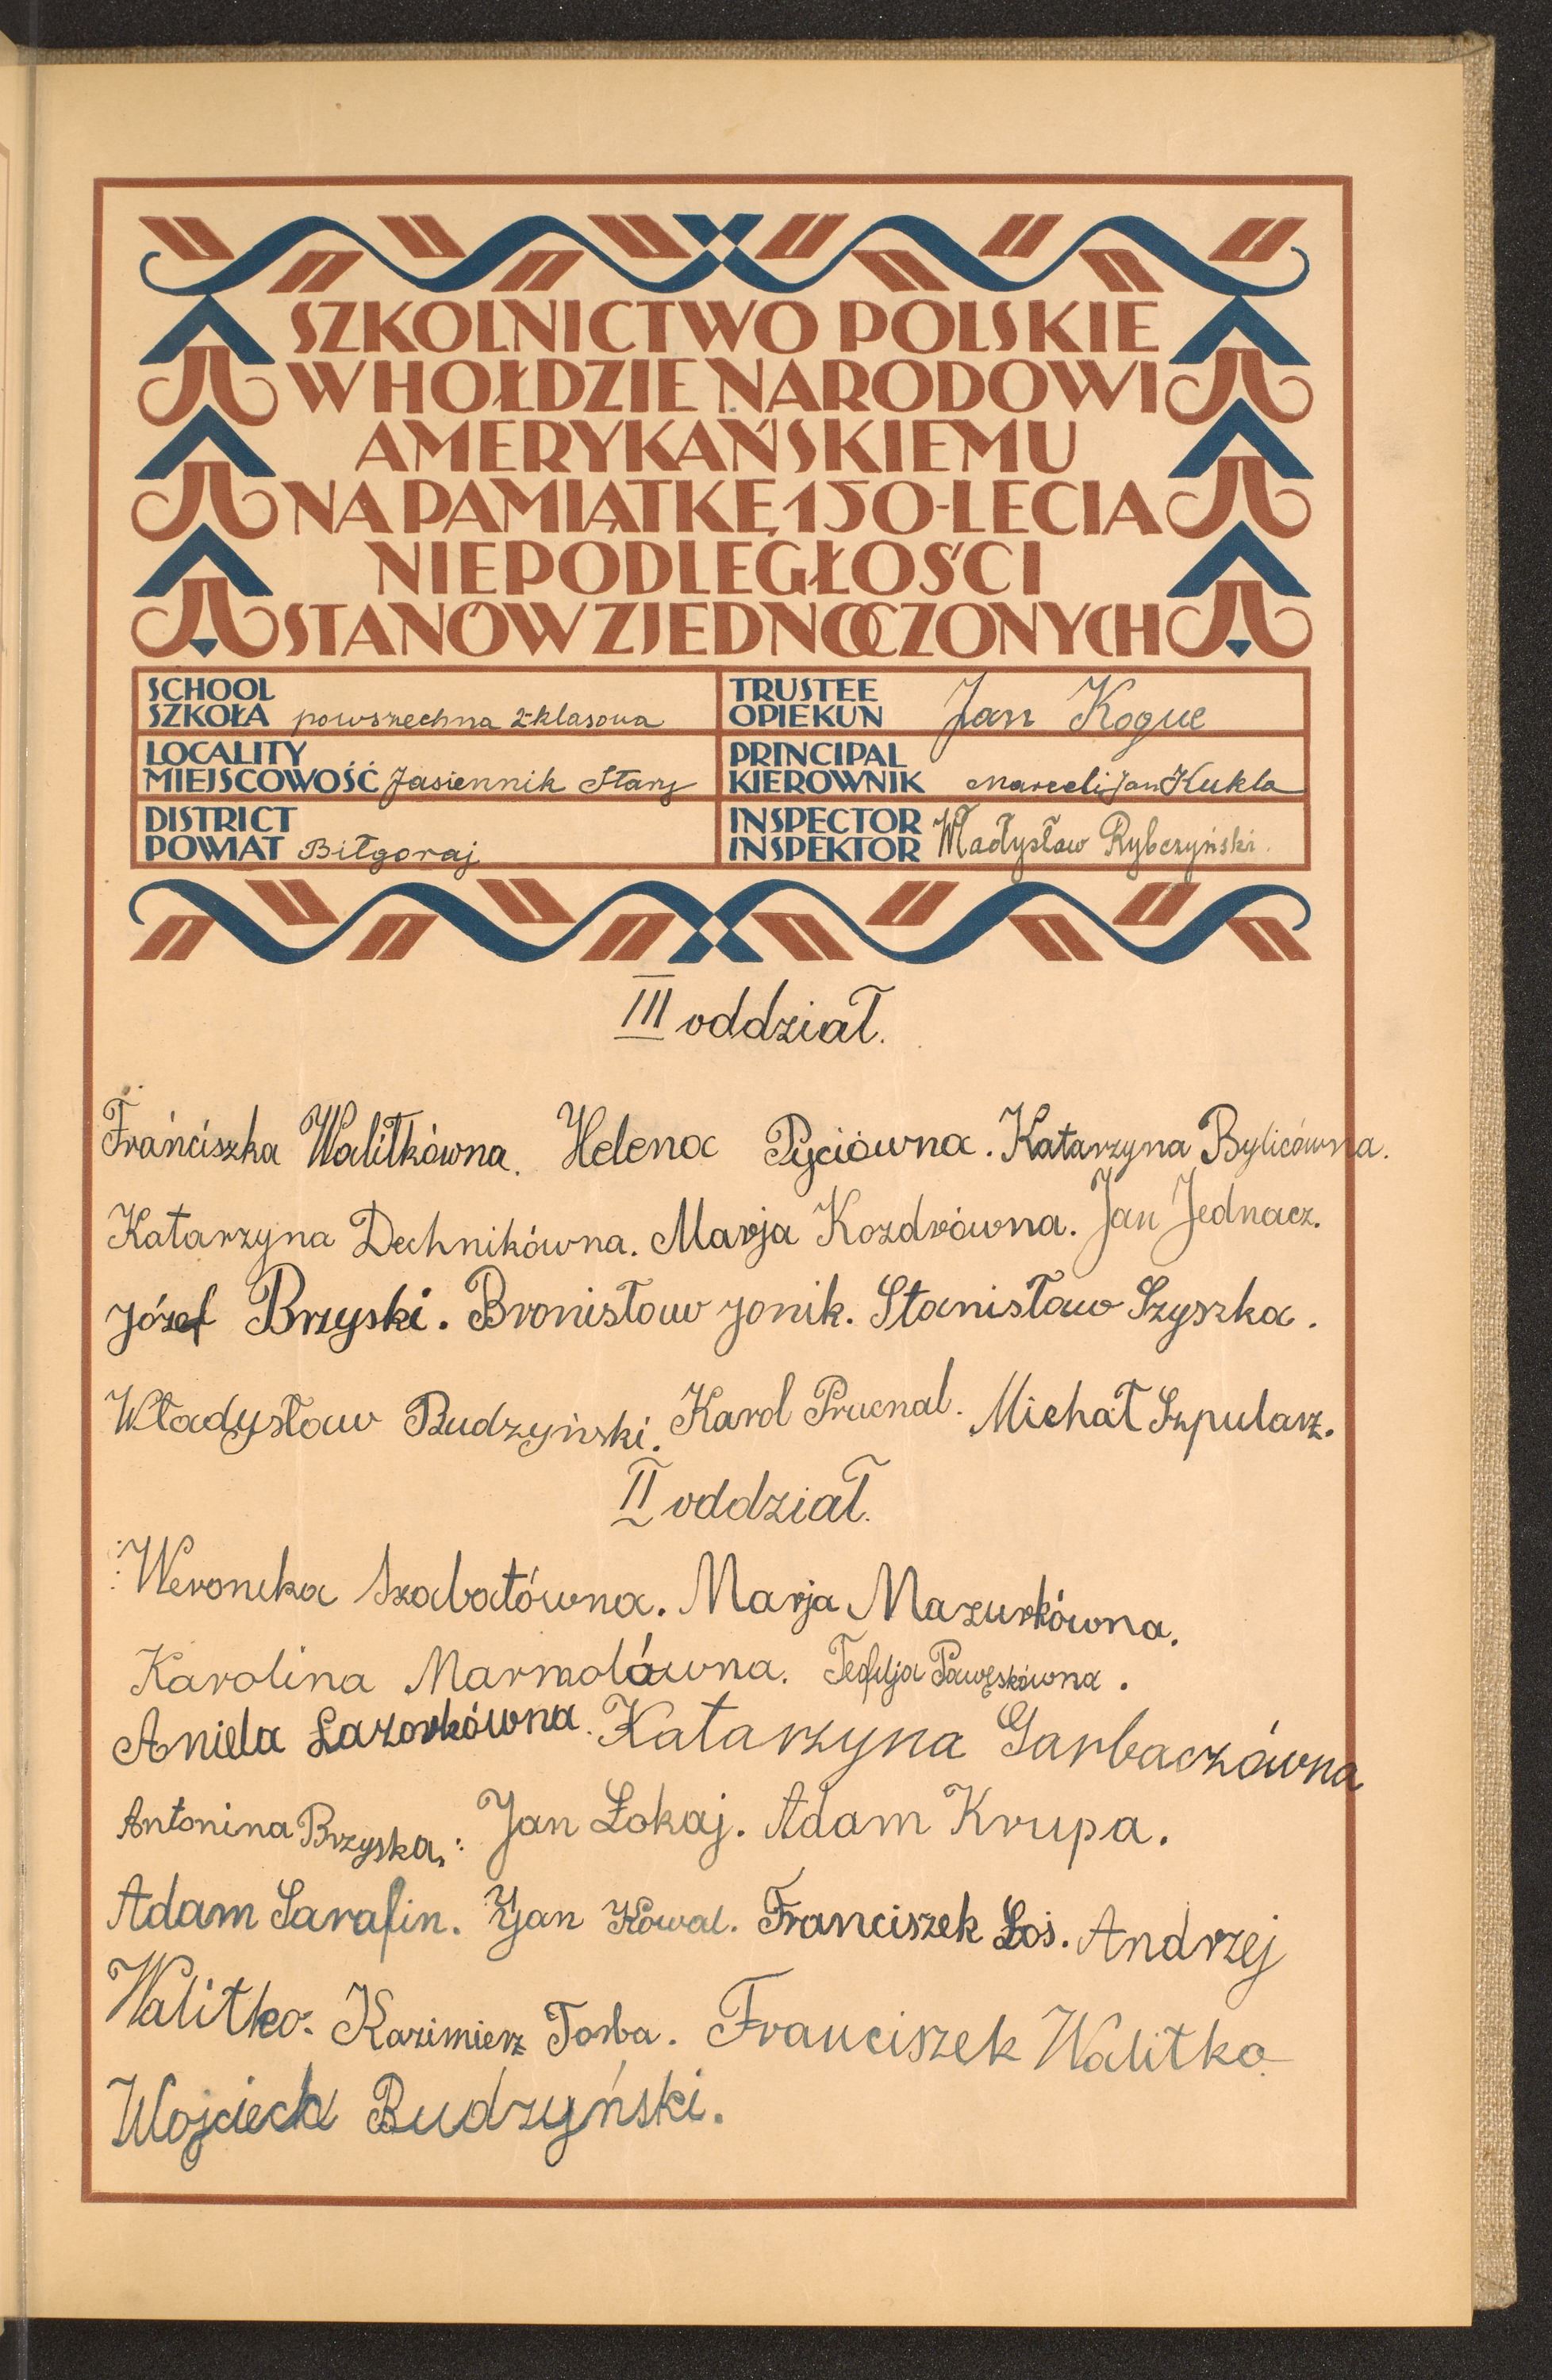 SZKOLNICTWO POLSKIE
W HOŁDZIE NARODOWI
AMERYKAŃSKIEMU
NA PAMIĄTKĘ 150-LECIA
NIEPODLEGŁOŚCI
STANÓW ZJEDNOCZONYCH
SCHOOL
SZKOŁA powszechna 2-klasowa
TRUSTEE
OPIEKUN Jan Kogue
LOCALITY
MIEJSCOWOŚĆ Jasiennik Stary
PRINCIPAL
KIEROWNIK Marceli Jan Kukla
DISTRICT
POWIAT Biłgoraj
INSPECTOR
INSPEKTOR Władysław Rybczyński.
III oddział.
Franciszka Walitkówna. Helena Pyciówna. Katarzyna Bylicówna.
Katarzyna Dechnikówna. Marja Kozdrówna. Jan Jednacz.
Józef Brzyski. Bronisław Jonik. Stanisław Szyszka.
Władysław Budzyński. Karol Prucnal. Michał Szpularz.
II oddział.
Weronika Szabatówna. Marja Mazurkówna.
Karolina Marmolówna. Teofilja Pawęskówna.
Aniela Lazorkówna. Katarzyna Garbaczówna
Antonina Brzyska. Jan Łokaj. Adam Krupa.
Adam Sarafin. Jan Kowal. Franciszek Łoś. Andrzej
Walitko. Kazimierz Torba. Franciszek Walitko
Wojciech Budzyński.